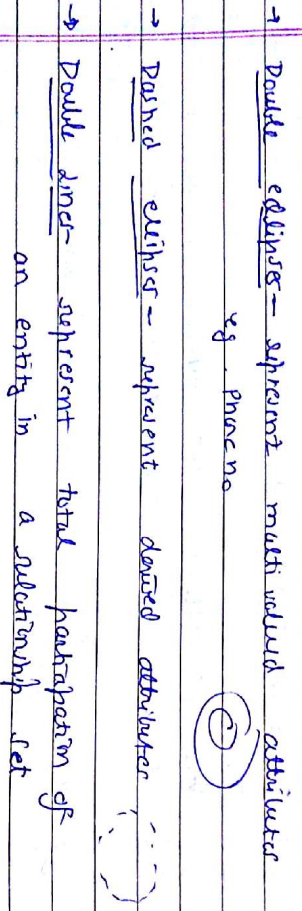 → Double ellipses - represent multi valued attributes
eg. Phone no
→ Dashed ellipses - represent derived attributes
→ Double Lines - represent total participation of
an entity in a relationship set